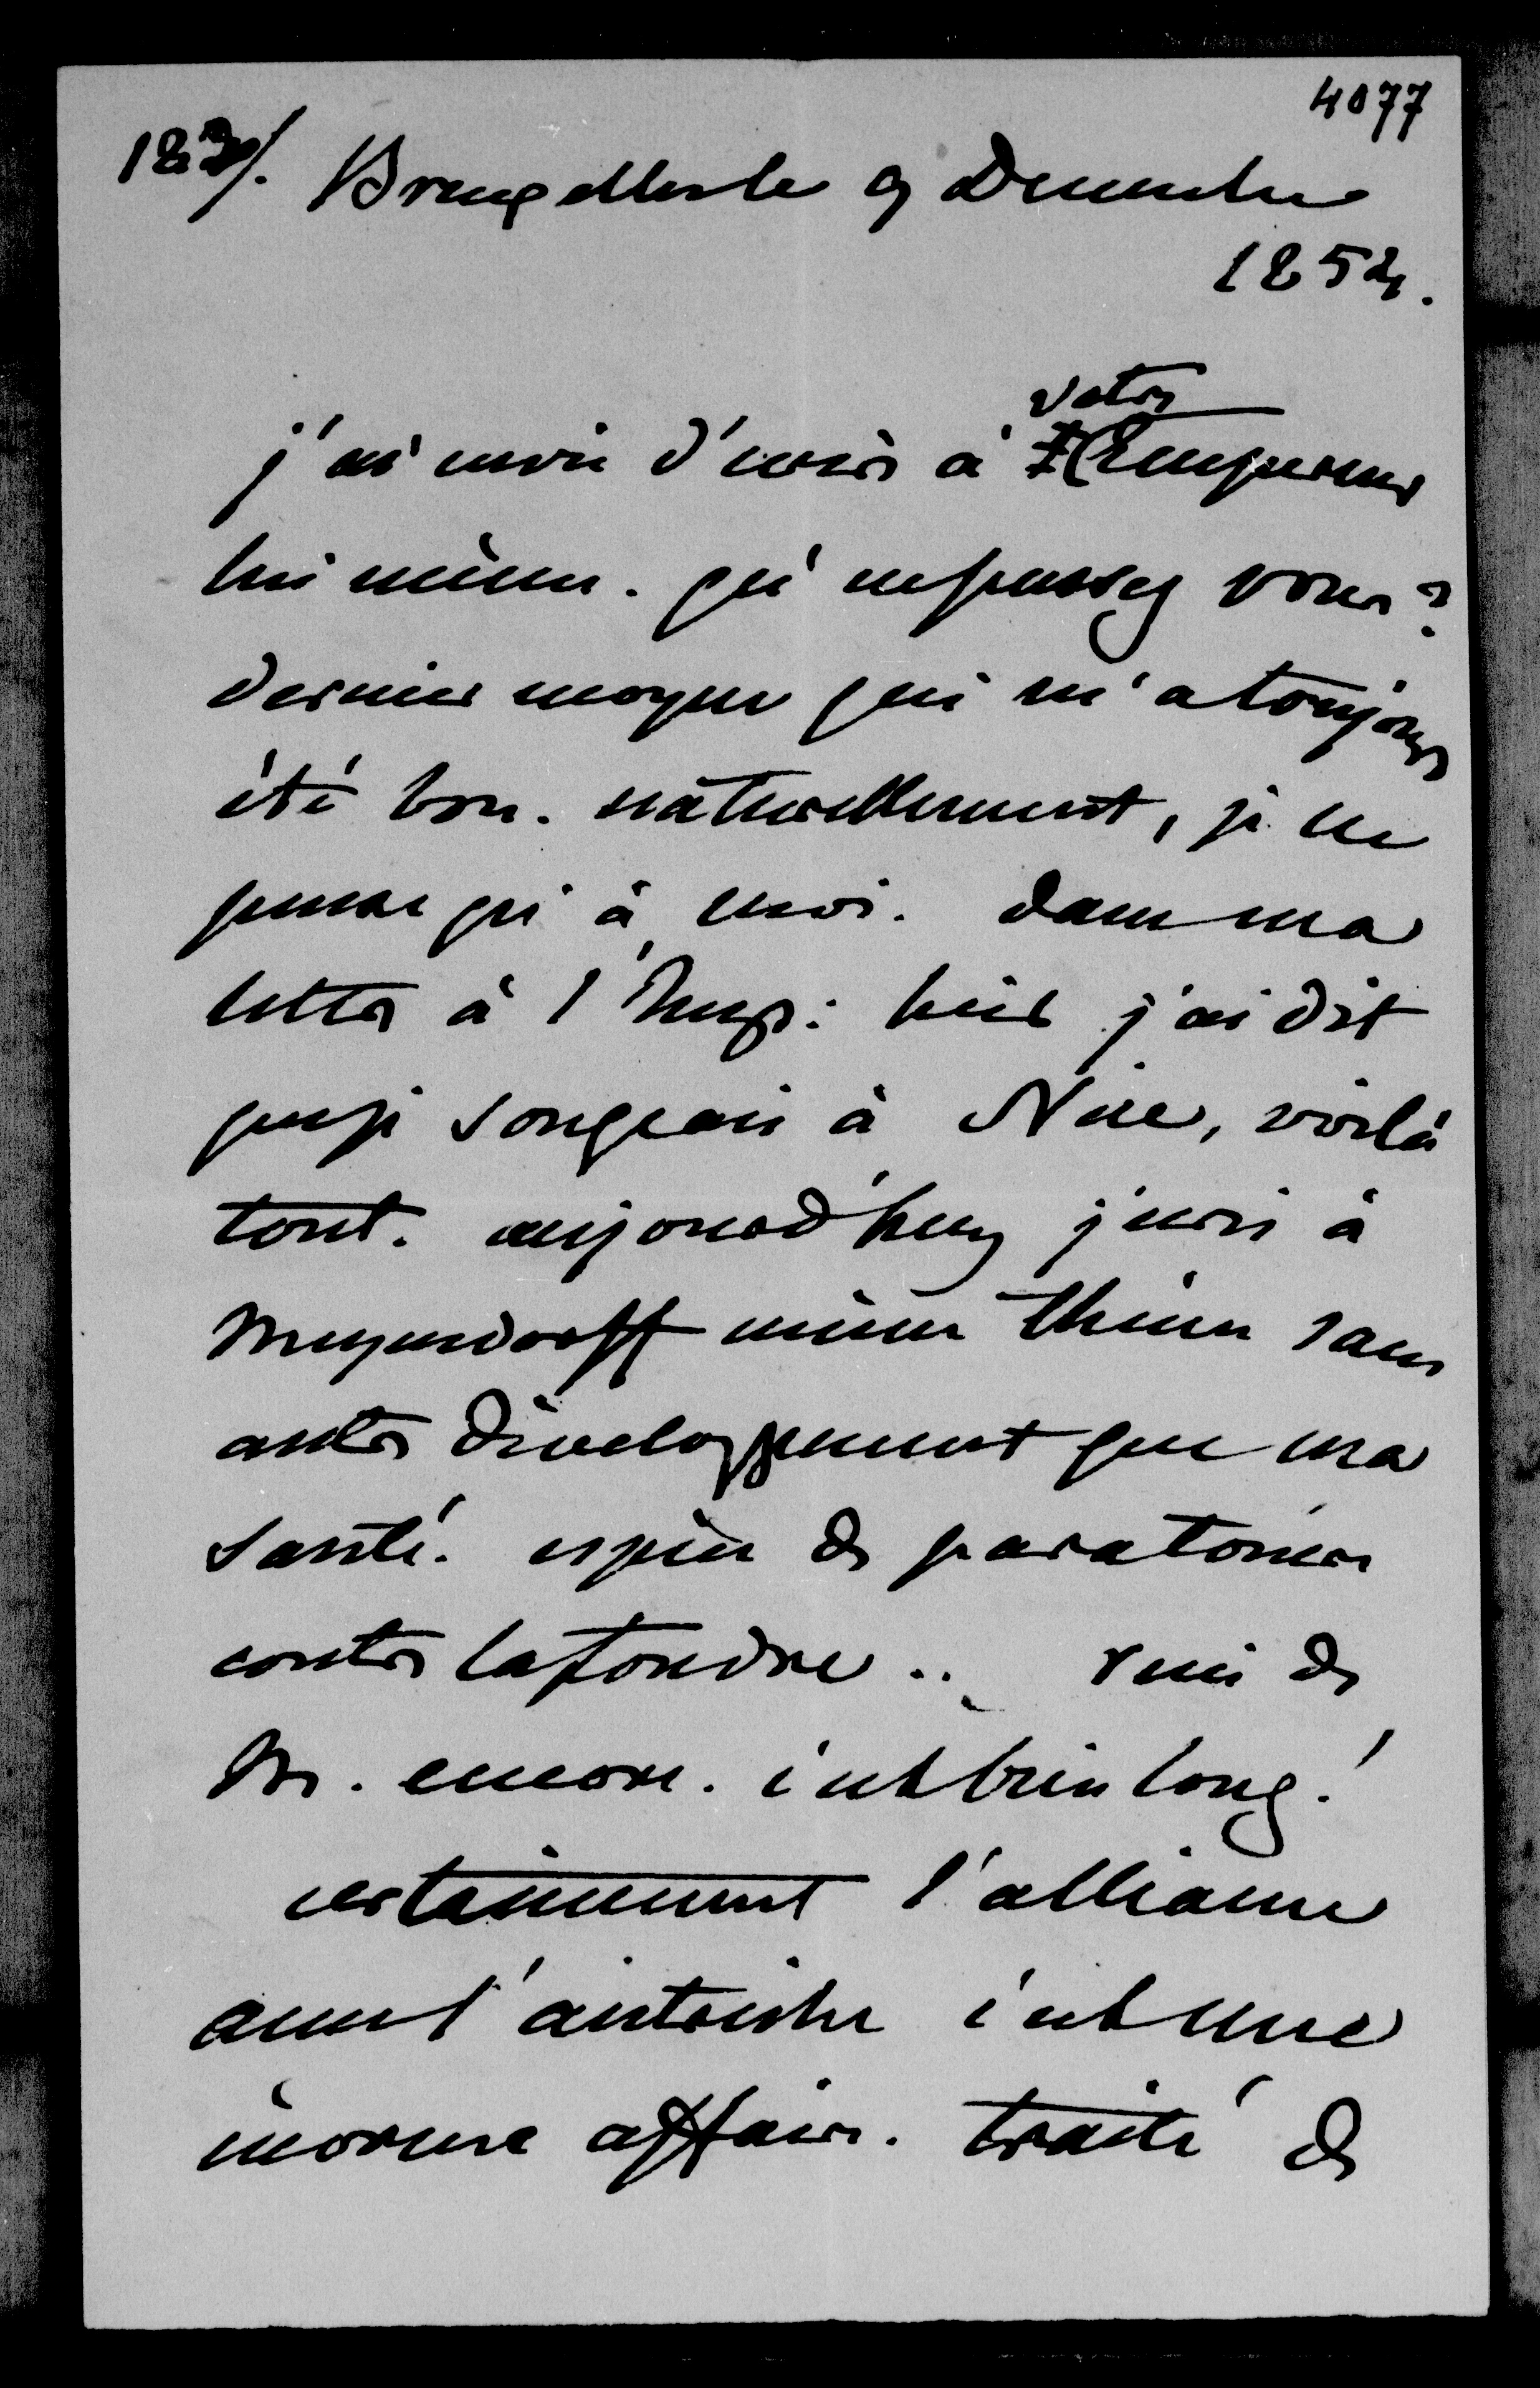 4077
183/. Bruxelles le 9 Décembre
1854.
votre
j'ai envie d'écrire à l'Empereur
lui même. qu'en pensez vous ?
dernier moyen qui m'a toujours
été bon. naturellement, je ne
pense qu'à moi. dans ma
lettre à l'Imp: hier j'ai dit
que je songeais à Nice, voilà
tout. aujourd'huy j'écris à
Meyendorff même thème sans
autre développement que ma
santé. espèce de paratonnerre
contre la foudre .. rien de
M. encore. c'est bien long !
certainement l'alliance
avec l'autriche c'est une
énorme affaire. traité de